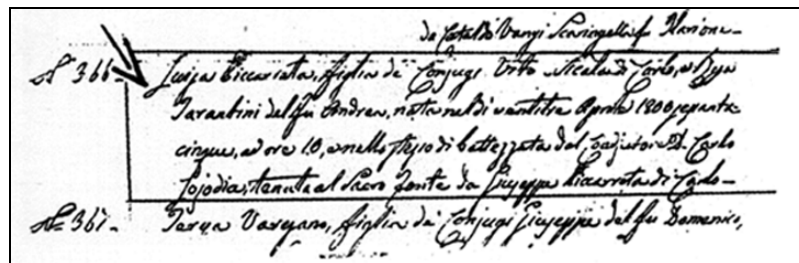 da Cataldo Vangi Scaringella fu Ilarione-
N° 366- Luisa Ciccarata, figlia de Conjugi Vito Nicola di Carlo, e
Tarantini del fu Andrea, nata nel dì ventitre Aprile 1800 sessanta
cinque, ad ore 10, e nello stesso dì battezzata dal Coadjutore D. Carlo
Lojodice, tenuta al Sacro Fonte da Giuseppa Ciccarrota di Carlo-
N° 367- Teresa Vangano, figlia de Conjugi Giuseppe del fu Domenico,